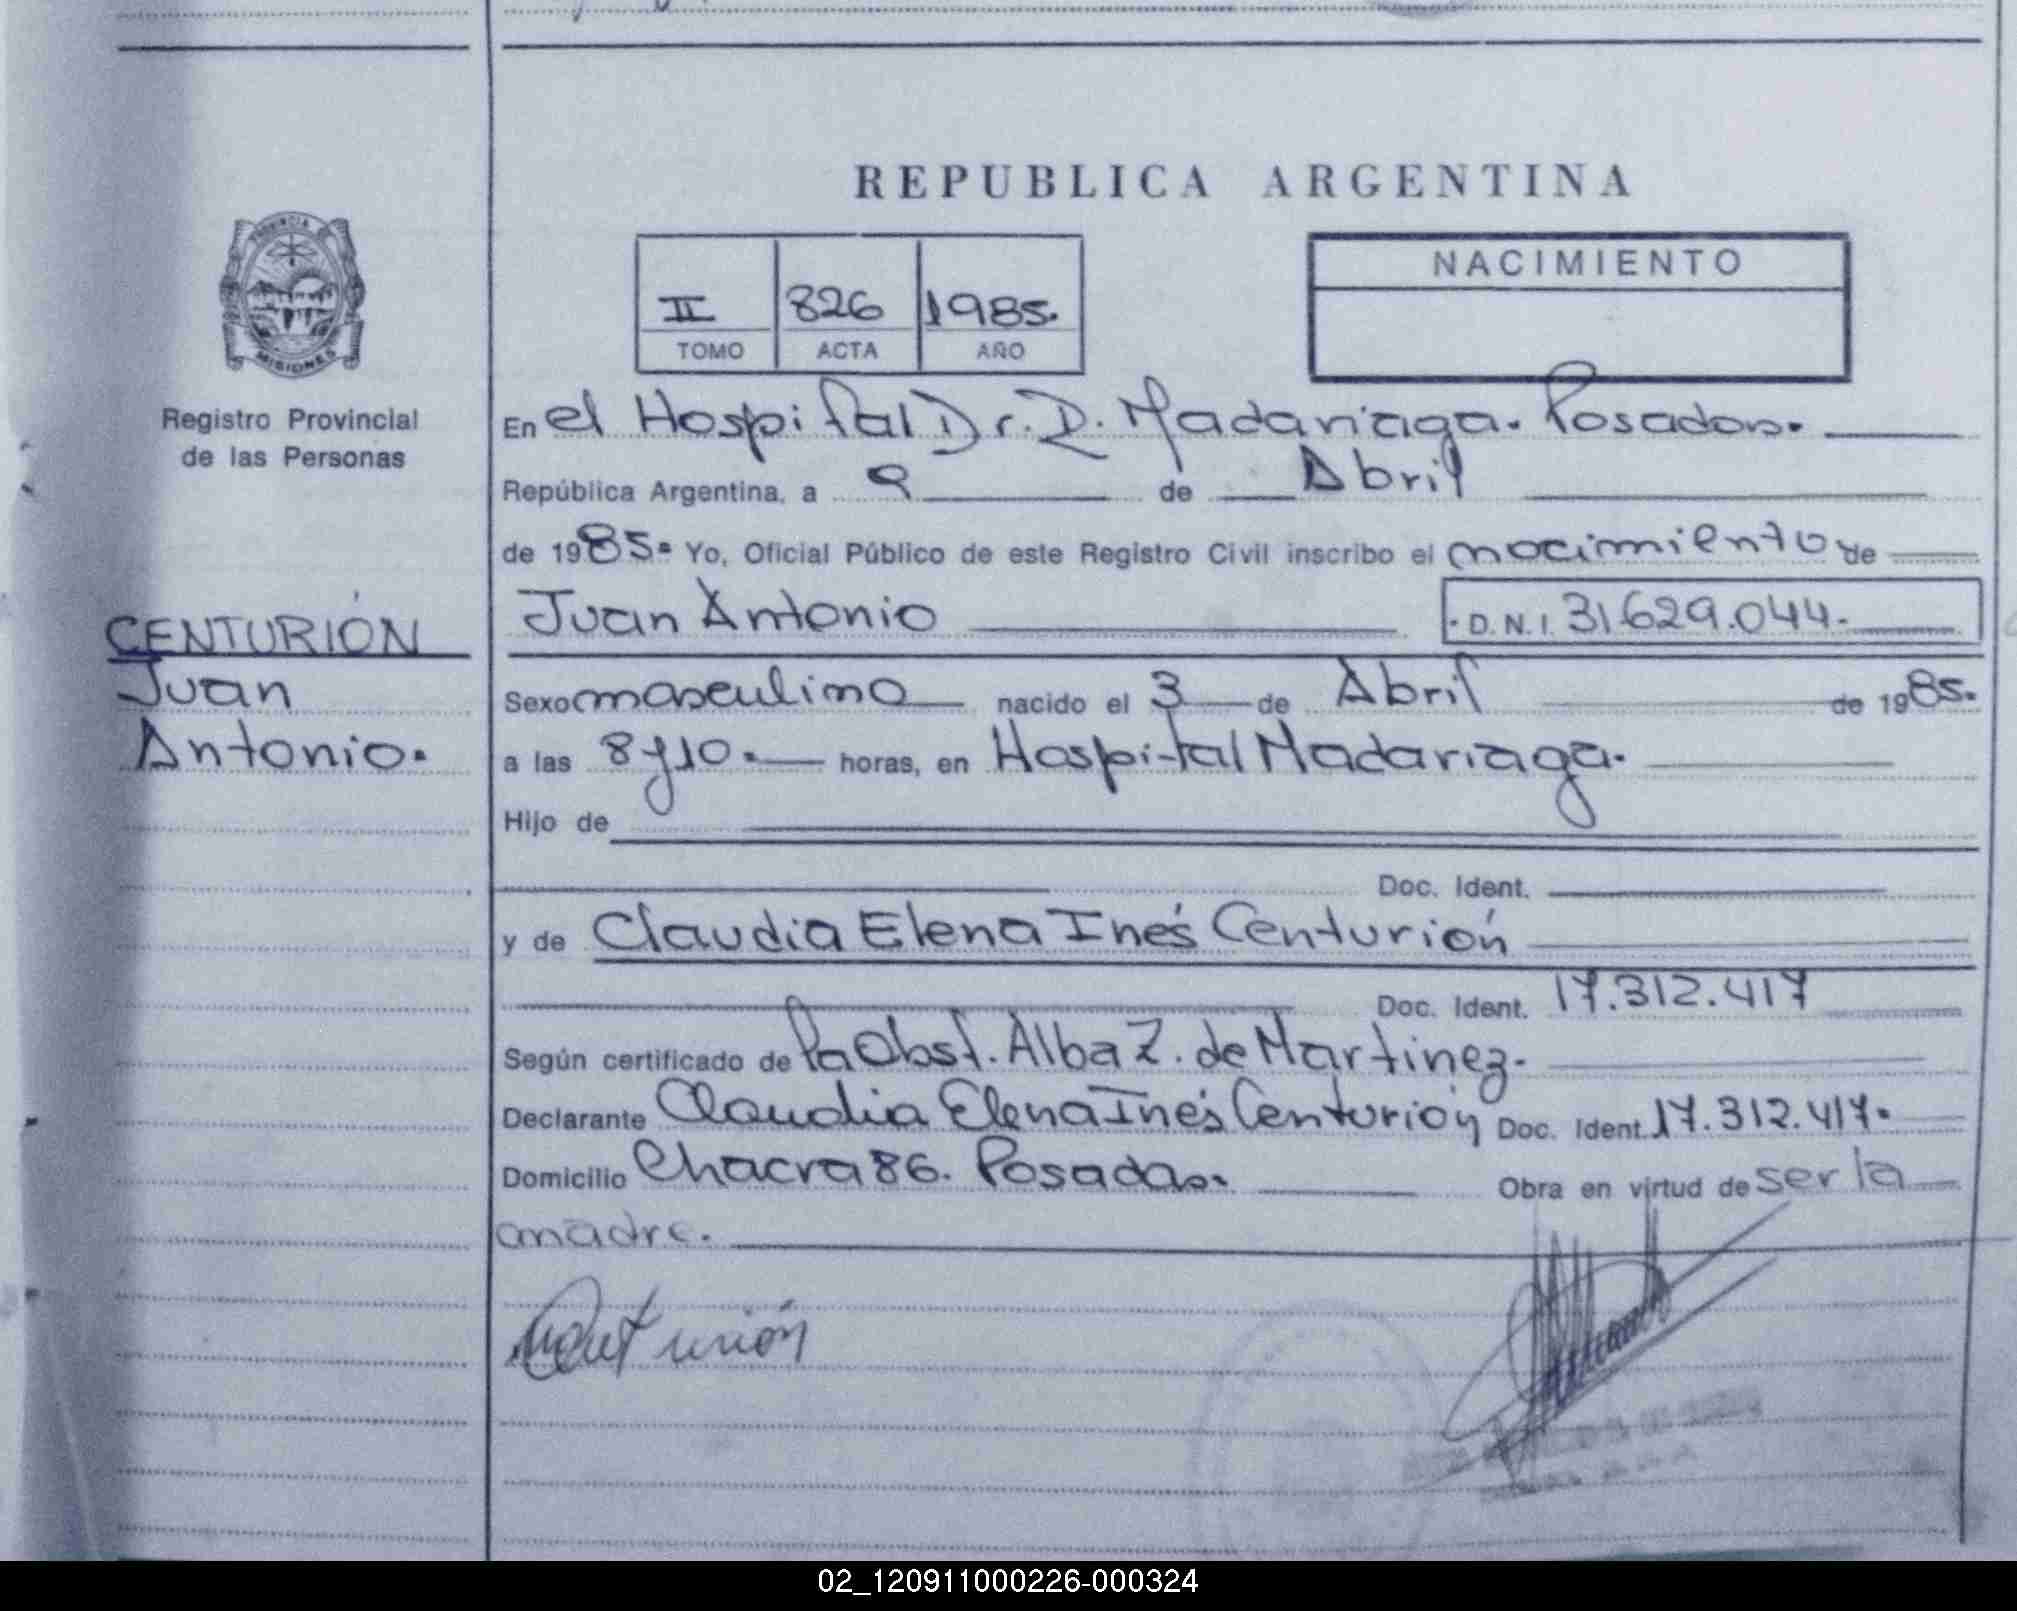 REPUBLICA ARGENTINA
PROVINCIA DE
MISIONES
Registro Provincial
de las Personas
II 826 1985.
TOMO ACTA AÑO
NACIMIENTO
En el Hospital Dr. R. Madariaga. Posadas.
República Argentina, a 9 de Abril
de 1985. Yo, Oficial Público de este Registro Civil inscribo el nacimiento de
CENTURIÓN
Juan
Antonio.
Juan Antonio D.N.I. 31.629.044.
Sexo masculino nacido el 3 de Abril de 1985.
a las 8 y 10. horas, en Hospital Madariaga.
Hijo de
Doc. Ident.
y de Claudia Elena Inés Centurión
Doc. Ident. 17.312.417
Según certificado de la Obst. Alba Z. de Martinez.
Declarante Claudia Elena Inés Centurión Doc. Ident. 17.312.417.
Domicilio Chacra 86. Posadas. Obra en virtud de ser la
madre.
Centurión
02_120911000226-000324